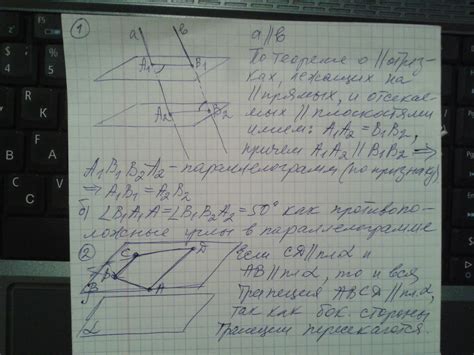 ①
a
b
A₁
B₁
A₂
B₂
a∥b
По теореме о ∥ отрез-
ках, лежащих на
∥ прямых, и отсекае-
мых ∥ плоскостями
имеем: A₁A₂ = B₁B₂,
причем A₁A₂ ∥ B₁B₂ ⇒
A₁B₁B₂A₂ – параллелограмм (по признаку)
⇒ A₁B₁ = A₂B₂
б) ∠B₁A₁A = ∠B₁B₂A₂ = 50° как противопо-
ложные углы в параллелограмме
②
C
D
B
A
β
α
Если CD ∥ пл α и
AB ∥ пл α, то и вся
трапеция ABCD ∥ пл α,
так как бок. стороны
трапеции пересекаются